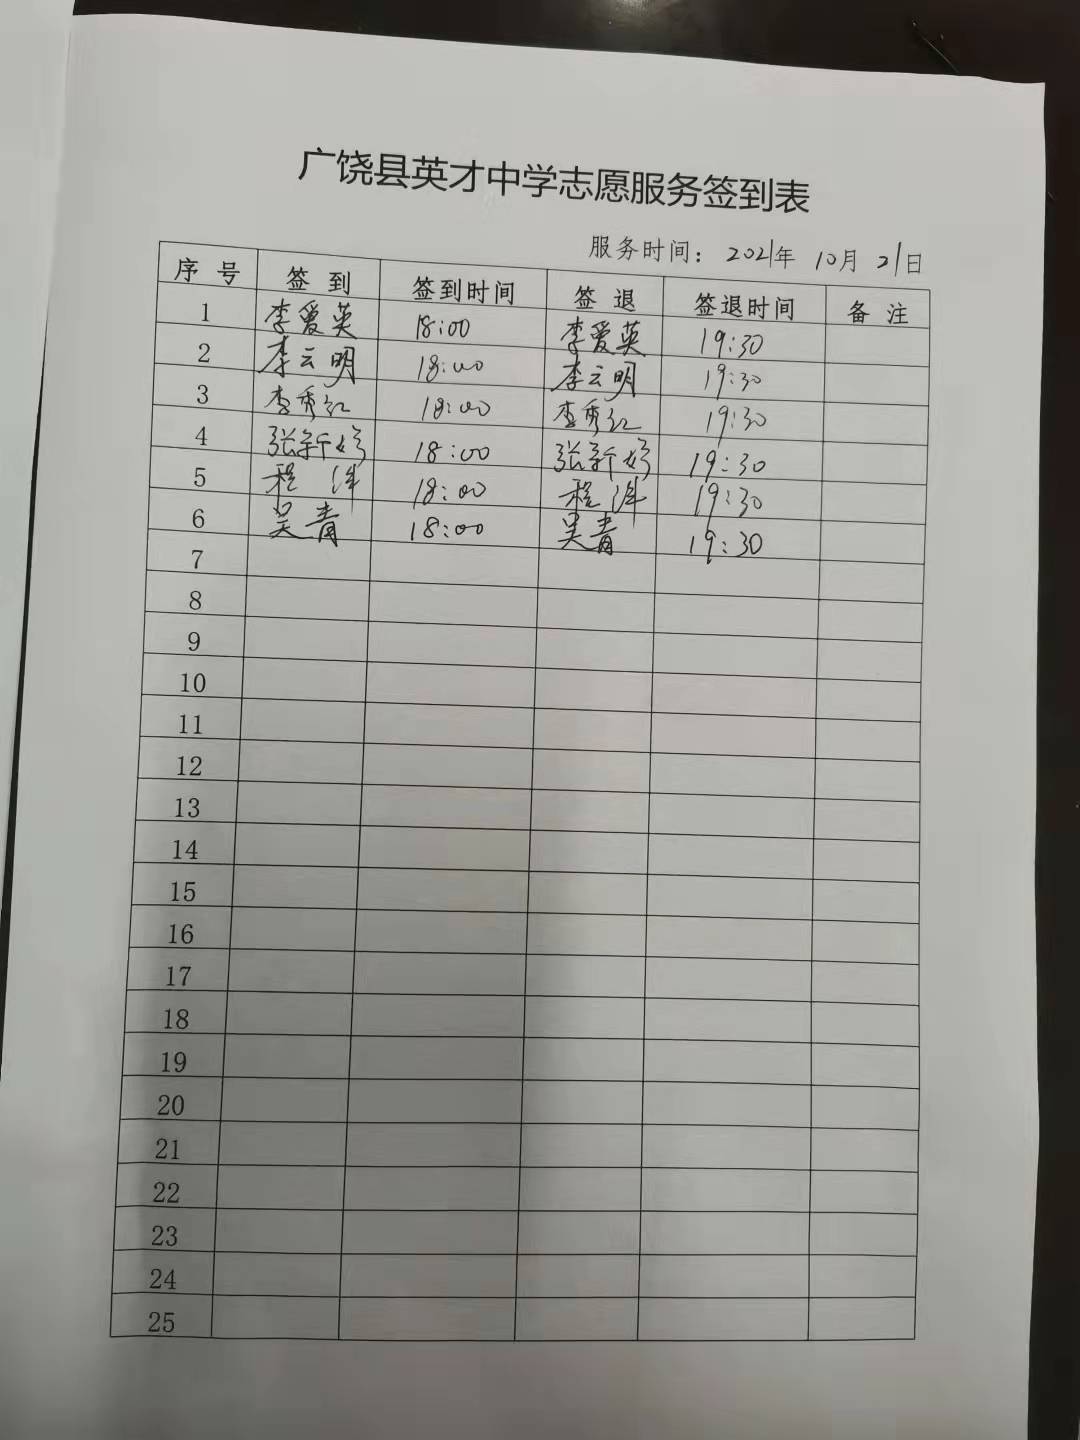 广饶县英才中学志愿服务签到表
服务时间：2021年 10月 21日
序号 签到 签到时间 签退 签退时间 备注
1 李爱英 18:00 李爱英 19:30
2 李云明 18:00 李云明 19:30
3 李秀红 18:00 李秀红 19:30
4 张新婷 18:00 张新婷 19:30
5 程洋 18:00 程洋 19:30
6 吴青 18:00 吴青 19:30
7
8
9
10
11
12
13
14
15
16
17
18
19
20
21
22
23
24
25